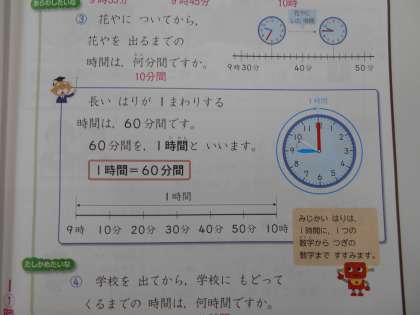 あらわしたいな
9時35分
9時45分
10時
③ 花やに ついてから,
花やを 出るまでの
時間は, 何分間ですか。
10分間
花やに
いた 時間
9時30分 40分 50分
長い はりが 1まわりする
時間は, 60分間です。
60分間を, 1時間と いいます。
1時間=60分間
1時間
1時間
9時 10分 20分 30分 40分 50分 10時
みじかい はりは,
1時間に, 1つの
数字から つぎの
数字まで すすみます。
たしかめたいな
④ 学校を 出てから, 学校に もどって
くるまでの 時間は, 何時間ですか。
1
①